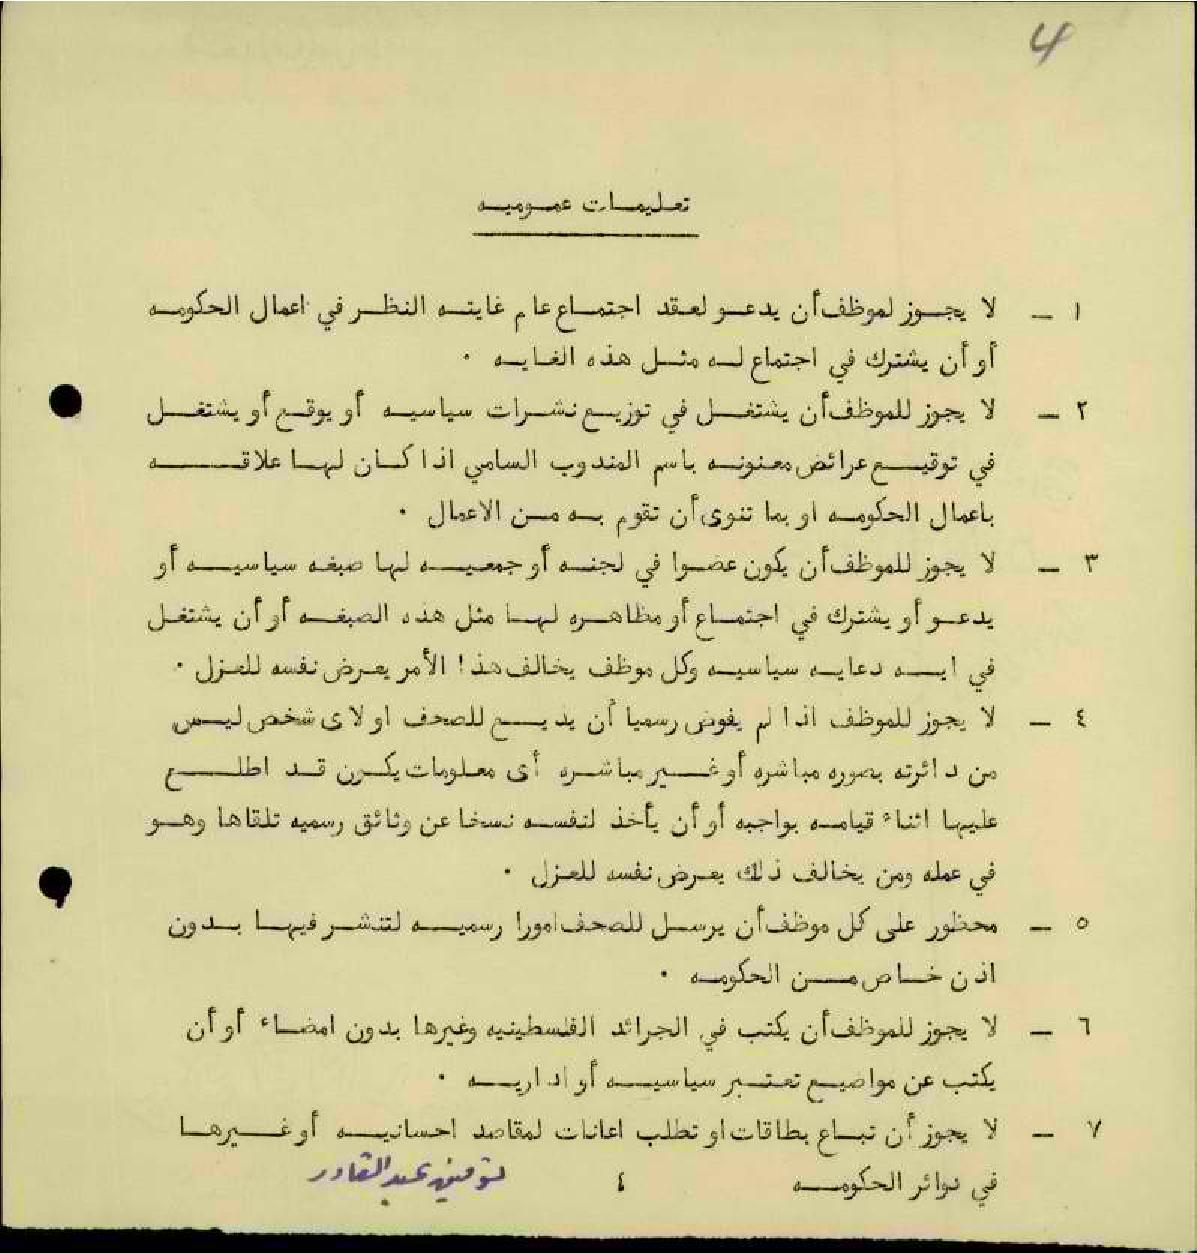 4
تعليمات عموميه
١ - لا يجوز لموظف أن يدعو لعقد اجتماع عام غايته النظر في اعمال الحكومه
أو أن يشترك في اجتماع له مثل هذه الغايه ٠
٢ - لا يجوز للموظف أن يشتغل في توزيع نشرات سياسيه أو يوقع أو يشتغل
في توقيع عرائض معنونه باسم المندوب السامي اذا كان لها علاقه
باعمال الحكومه او بما تنوى أن تقوم به من الاعمال ٠
٣ - لا يجوز للموظف أن يكون عضوا في لجنه أو جمعيه لها صبغه سياسيه أو
يدعو أو يشترك في اجتماع أو مظاهره لها مثل هذه الصبغه أو أن يشتغل
في ايه دعايه سياسيه وكل موظف يخالف هذا الأمر يعرض نفسه للعزل ٠
٤ - لا يجوز للموظف اذا لم يفوض رسميا أن يذيع للصحف او لاى شخص ليس
من دائرته بصوره مباشره أو غير مباشره أى معلومات يكون قد اطلع
عليها اثناء قيامه بواجبه أو أن يأخذ لنفسه نسخا عن وثائق رسميه تلقاها وهو
في عمله ومن يخالف ذلك يعرض نفسه للعزل ٠
٥ - محظور على كل موظف أن يرسل للصحف امورا رسميه لتنشر فيها بدون
اذن خاص من الحكومه ٠
٦ - لا يجوز للموظف أن يكتب في الجرائد الفلسطينيه وغيرها بدون امضاء أو أن
يكتب عن مواضيع تعتبر سياسيه أو اداريه ٠
٧ - لا يجوز أن تباع بطاقات او تطلب اعانات لمقاصد احسانيه أو غيرها
في دوائر الحكومه ٤ توفيق عبد القادر